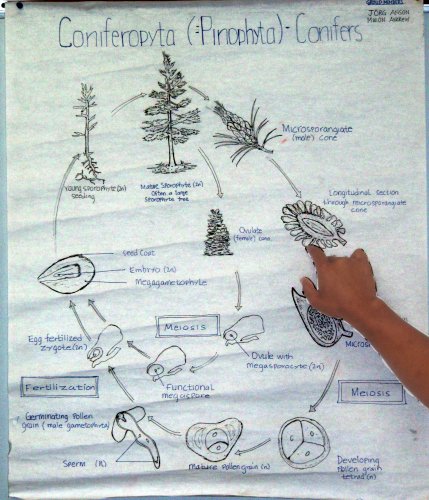 GROUP MEMBERS
JÖRG ANSON
MILTON ANDREW
Coniferopyta (:Pinophyta)- Conifers
Microsporangiate
(male) cone
Young sporophyte (2n)
seedling
Mature Sporophyte (2n)
Often a large
Sporophyte tree
Longitudinal section
through microsporangiate
cone
Ovulate
(female) cone
Seed Coat
Embryo (2n)
Megagametophyte
Meiosis
Egg fertilized
zygote (2n)
Ovule with
megasporocyte (2n)
Fertilization
Functional
megaspore
Meiosis
Germinating Pollen
grain (male gametophyte)
Sperm (n)
Mature Pollen grain (n)
Developing
Pollen grain
tetrad (n)